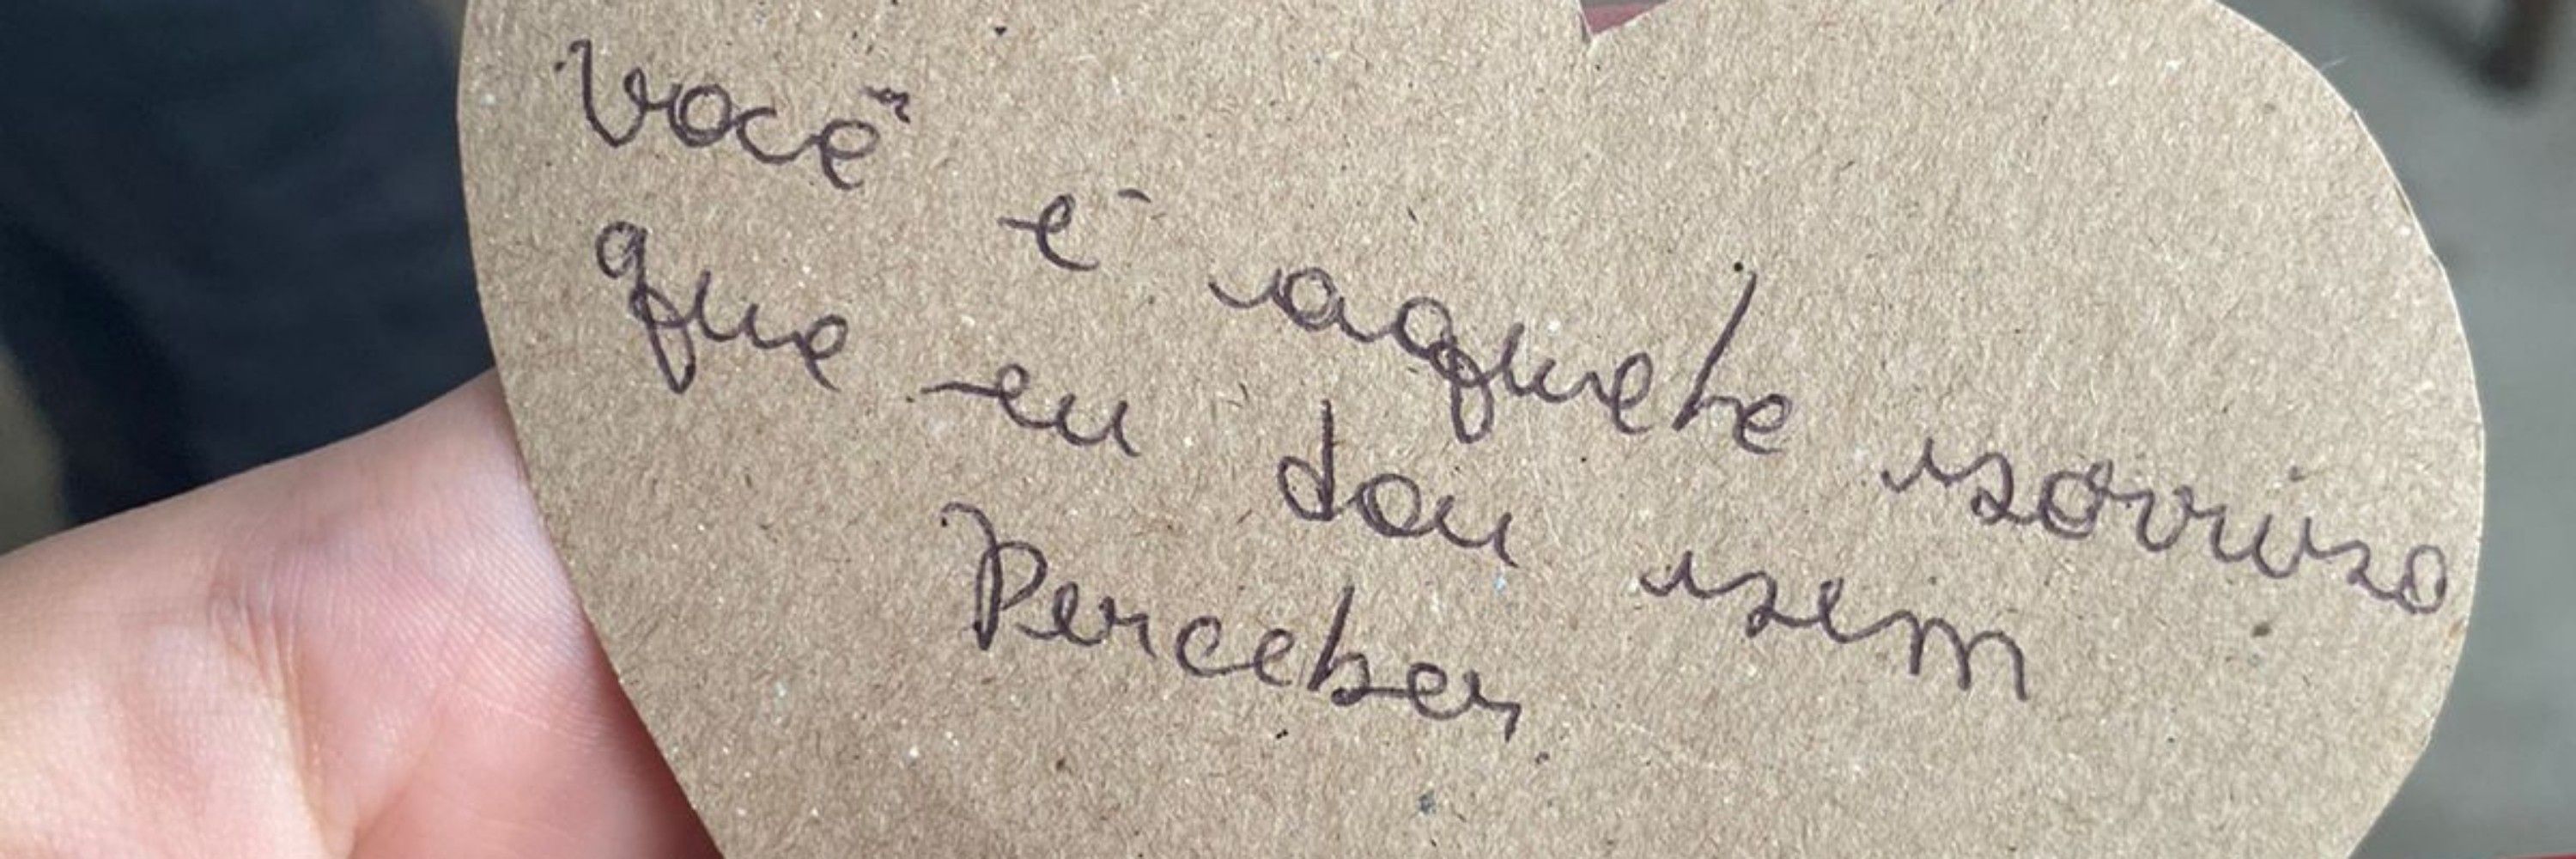 você é aquele sorriso
que eu dou sem
Perceber.